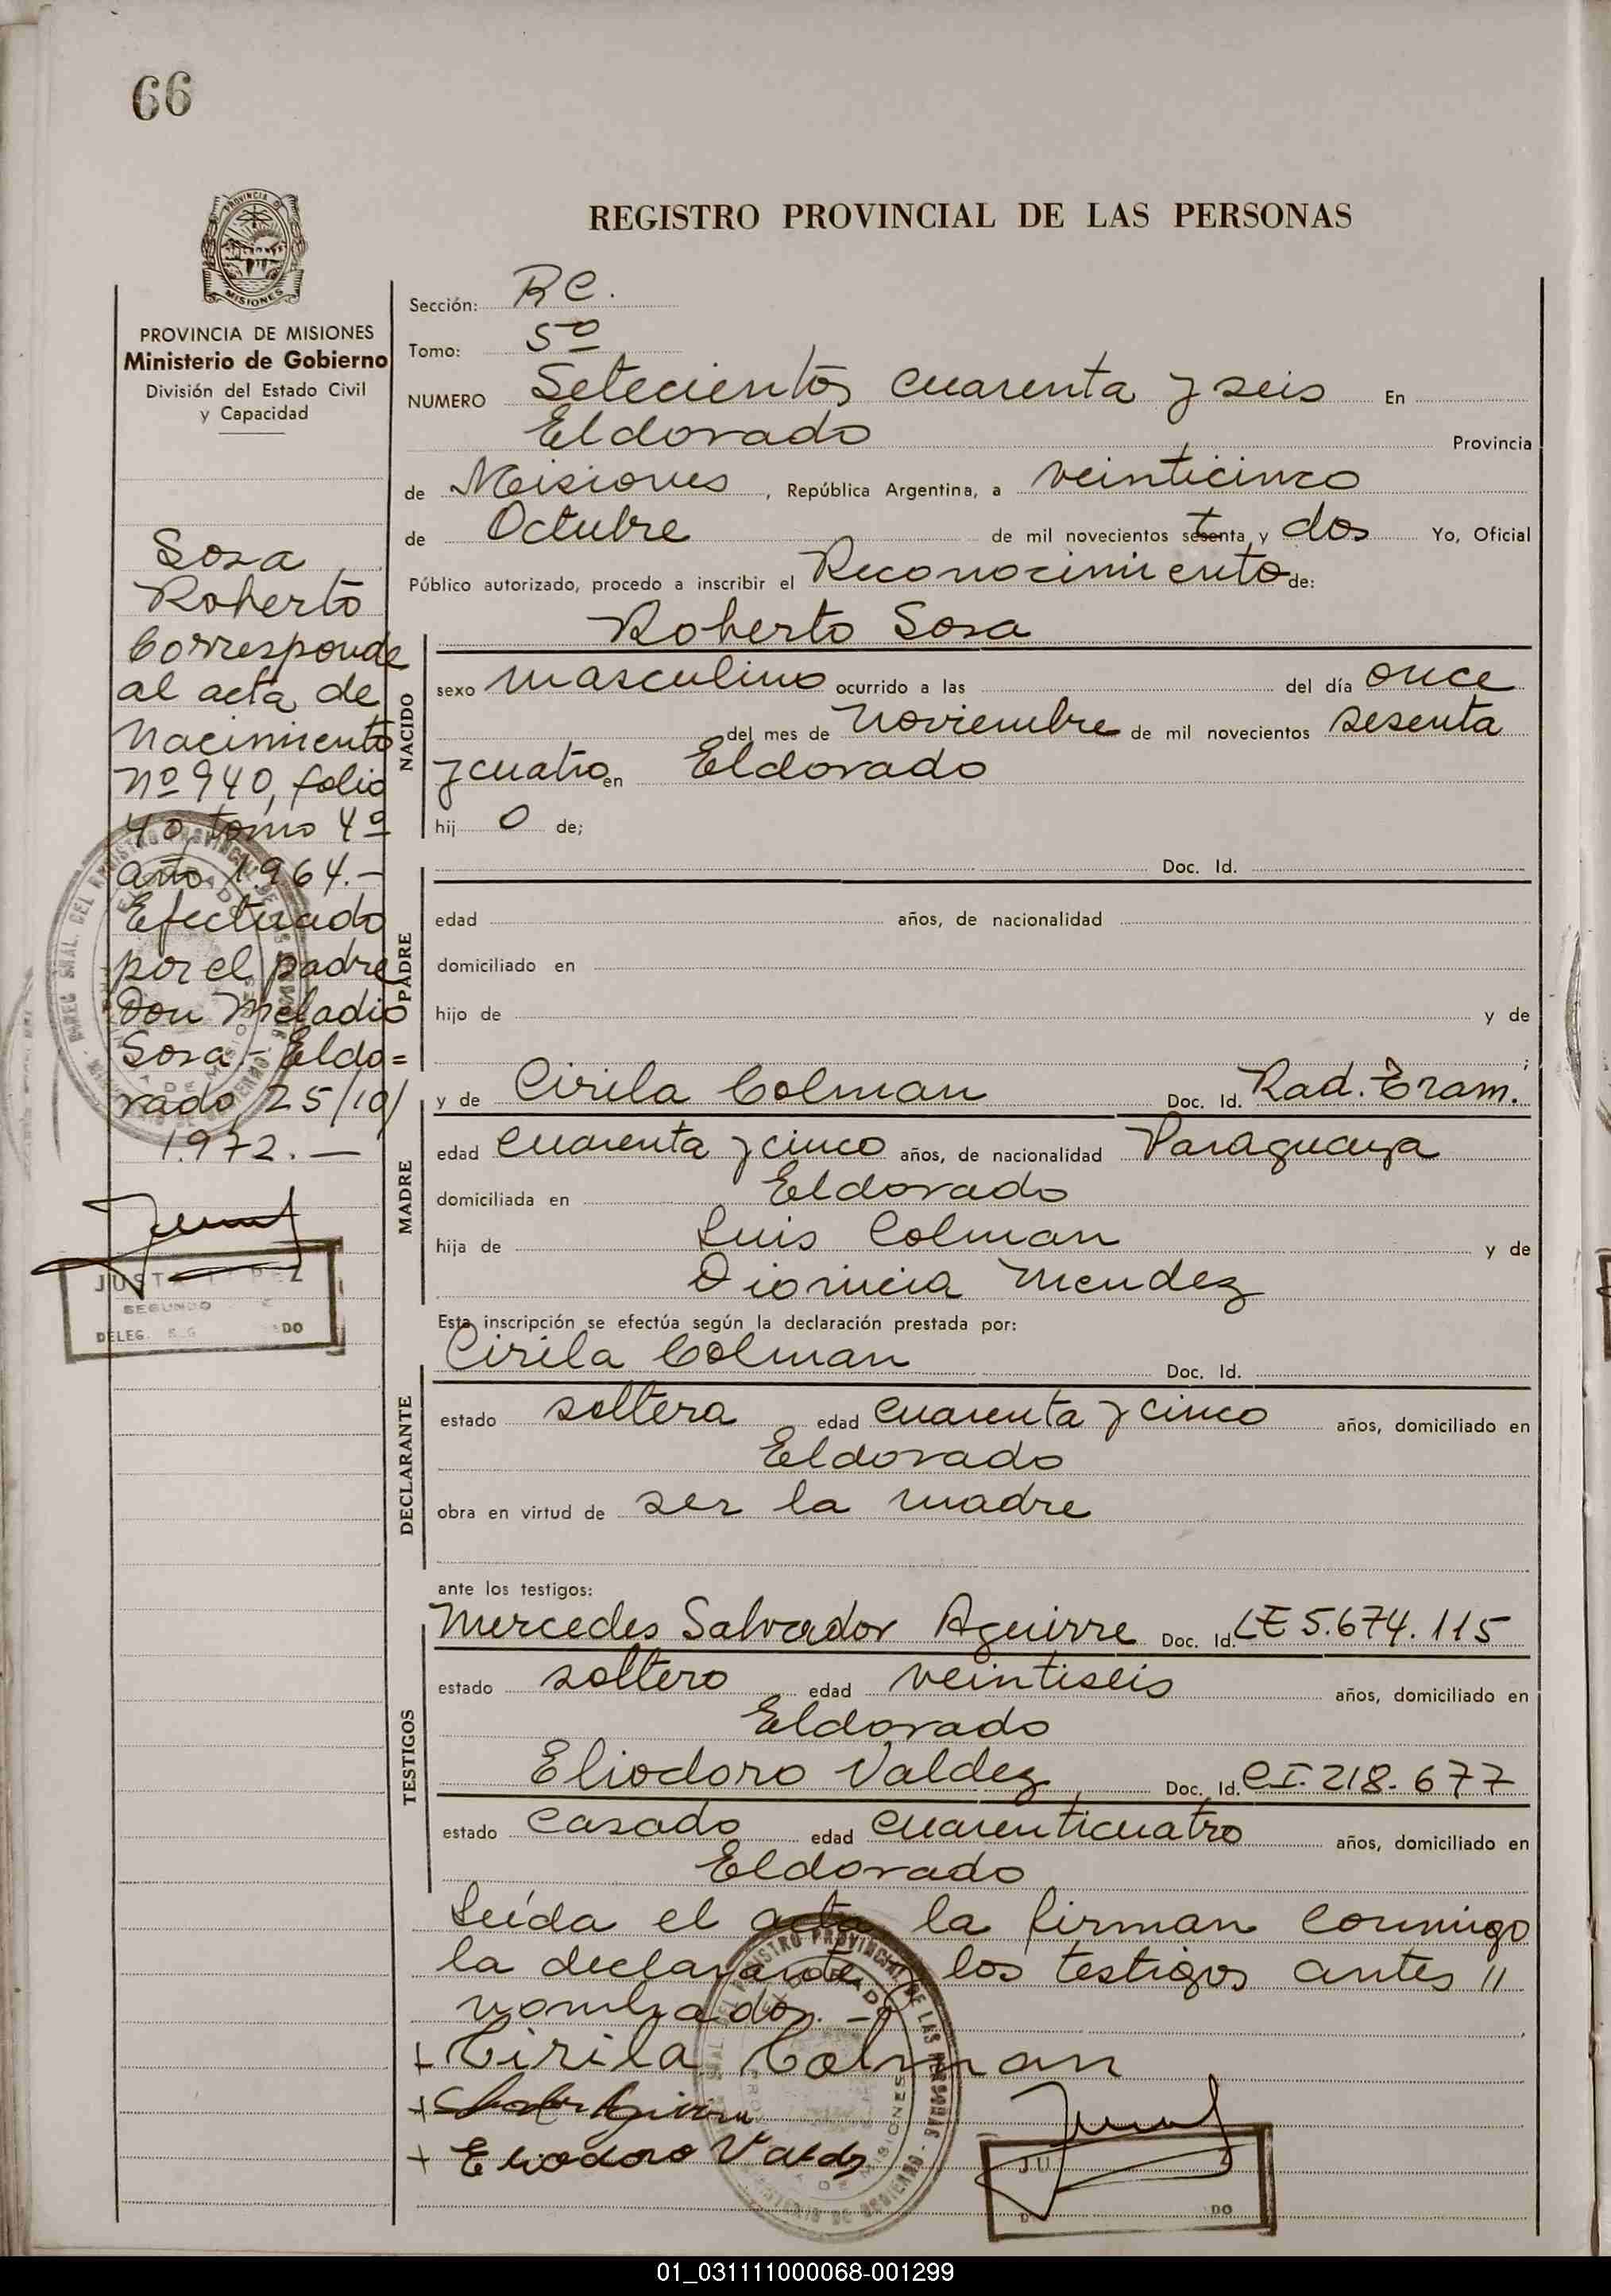 66
REGISTRO PROVINCIAL DE LAS PERSONAS
PROVINCIA DE MISIONES
Ministerio de Gobierno
División del Estado Civil
y Capacidad
Sosa
Roberto
Corresponde
al acta de
Nacimiento
Nº 940, folio
40, tomo 4º
año 1.964.-
Efectuado
por el padre
Don Meladio
Sosa - Eldo=
rado, 25/10/
1.972.-
SEGUNDO
DELEG.
Sección: RC.
Tomo: 5º
NUMERO Setecientos cuarenta y seis En
Eldorado Provincia
de Misiones, República Argentina, a veinticinco
de Octubre de mil novecientos setenta y dos Yo, Oficial
Público autorizado, procedo a inscribir el Reconocimiento de:
NACIDO
Roberto Sosa
sexo masculino ocurrido a las del día once
del mes de Noviembre de mil novecientos sesenta
y cuatro en Eldorado
hij o de;
PADRE
Doc. Id.
edad años, de nacionalidad
domiciliado en
hijo de y de
;
MADRE
y de Cirila Colman Doc. Id. Rad. Tram.
edad cuarenta y cinco años, de nacionalidad Paraguaya
domiciliada en Eldorado
hija de Luis Colman y de
Dionicia Mendez
Esta inscripción se efectúa según la declaración prestada por:
DECLARANTE
Cirila Colman Doc. Id.
estado soltera edad cuarenta y cinco años, domiciliado en
Eldorado
obra en virtud de ser la madre
ante los testigos:
TESTIGOS
Mercedes Salvador Aguirre Doc. Id. LE 5.674.115
estado soltero edad veintiseis años, domiciliado en
Eldorado
Eliodoro Valdez Doc. Id. CI. 218.677
estado casado edad cuarenticuatro años, domiciliado en
Eldorado
Leída el acta la firman conmigo
la declarante y los testigos antes "
nombrados. -
+ Cirila Colman
+ Aguirre
+ Eliodoro Valdz
01_031111000068-001299